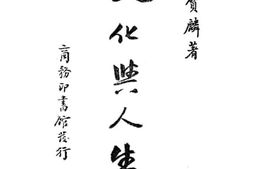 賀麟著
文化與人生
商務印書館發行